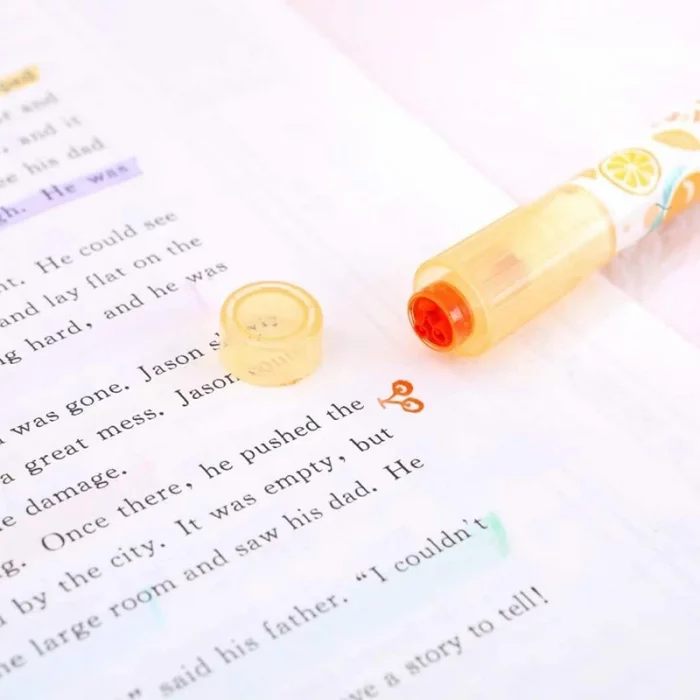 ped
or and
, and it
ee his dad
gh. He was
nt. He could see
and lay flat on the
ng hard, and he was
was gone. Jason
a great mess. Jason
e damage.
g. Once there, he pushed the
by the city. It was empty, but
he large room and saw his dad. He
" said his father. "I couldn't
ve a story to tell!